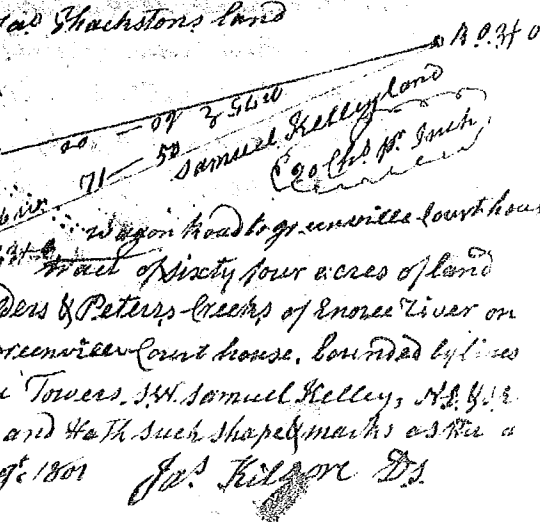 Jas Shackstons land
B.O. 3x0
Samuel Kellys land
71 — 50
20 Chs pr Inch
Wagon Road to greenville Courthous
tract of sixty four acres of land
ders & Peters Creeks of Enoree River on
greenville Court house, bounded by lines
Towers, SW. Samuel Kelley,
and Hath such shape & marks as the a
1801 Jas Kilgore Ds.